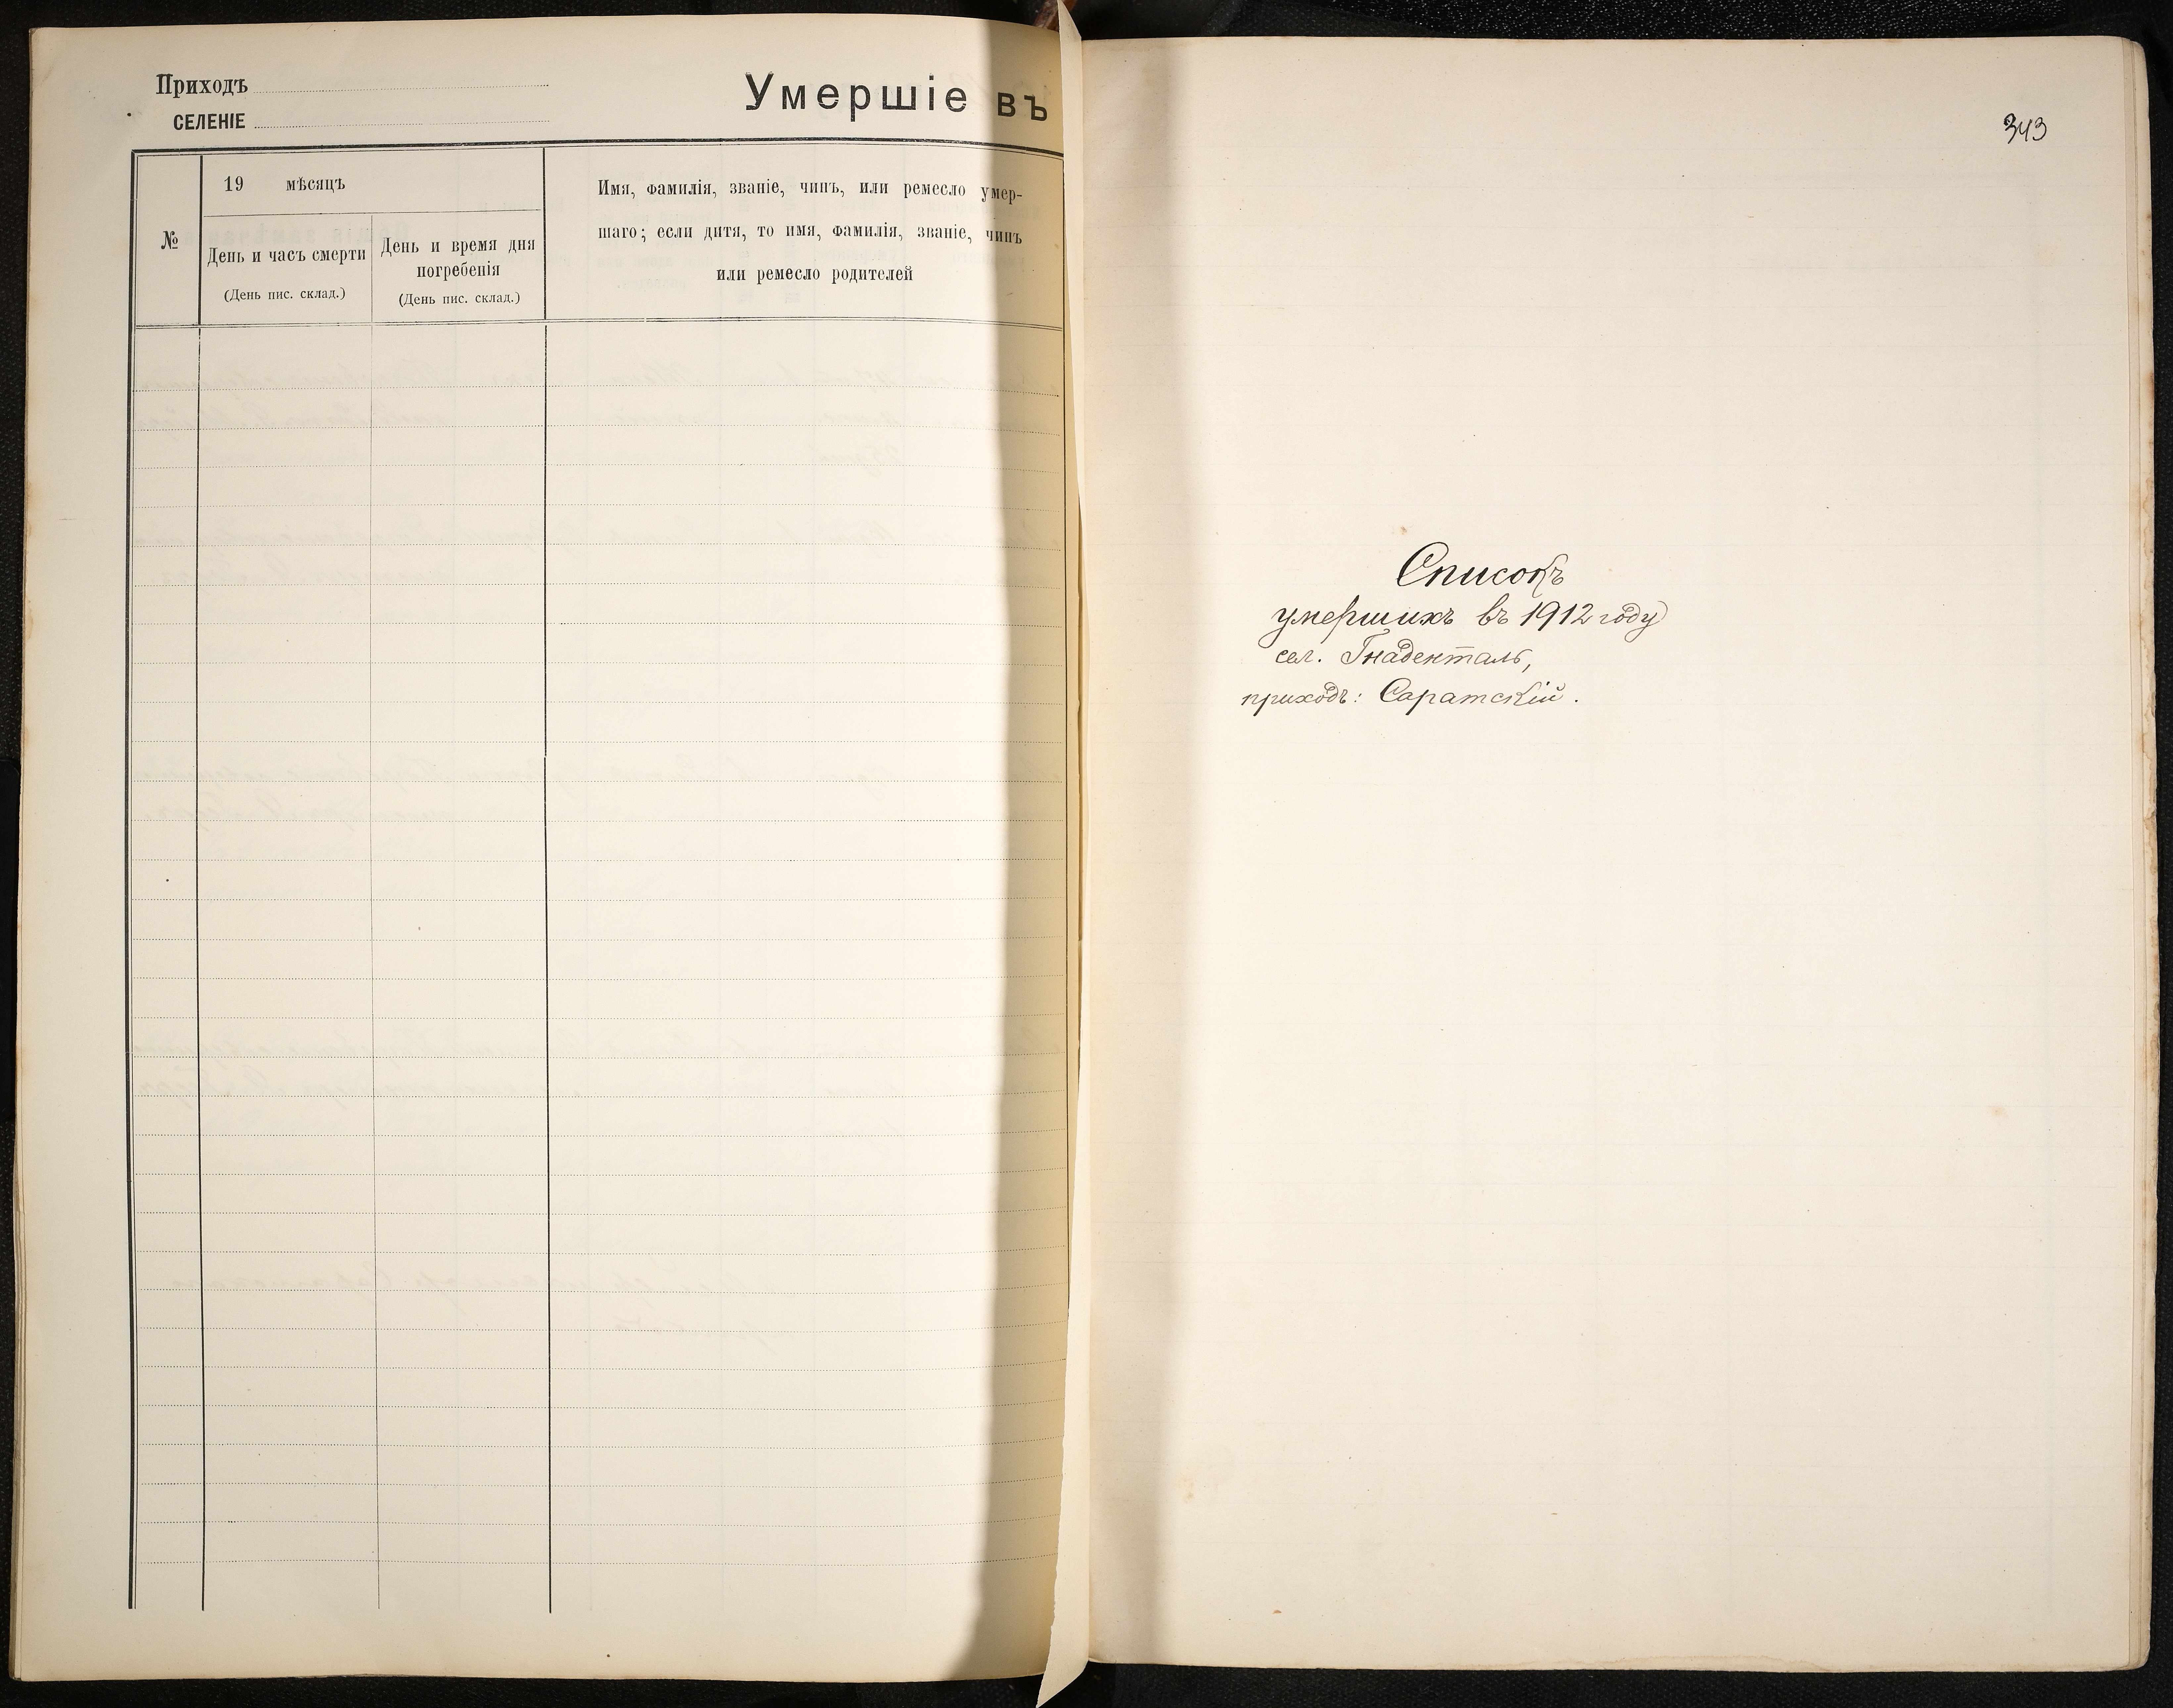 Приходъ
СЕЛЕНІЕ
Умершіе въ
№
19 мѣсяцъ
День и часъ смерти
(День пис. склад.)
День и время дня
погребенія
(День пис. склад.)
Имя, фамилія, званіе, чинъ, или ремесло умер-
шаго; если дитя, то имя, фамилія, званіе, чинъ
или ремесло родителей
343
Списокъ
умершихъ въ 1912 году
сел. Гнаденталь,
приходъ: Саратскій.